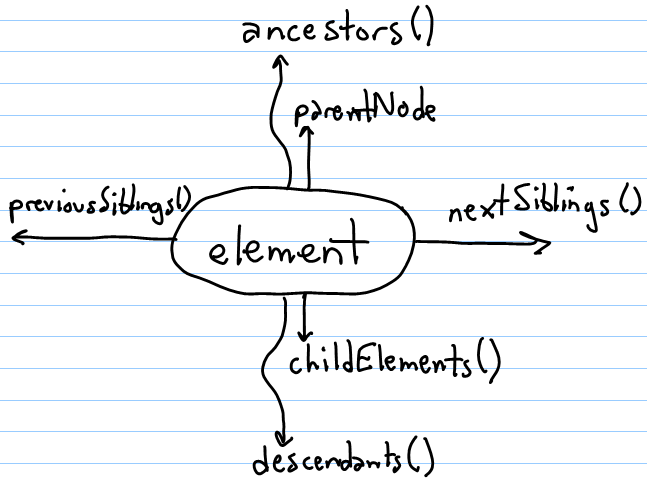 ancestors()
parentNode
previousSiblings()
nextSiblings()
element
childElements()
descendants()